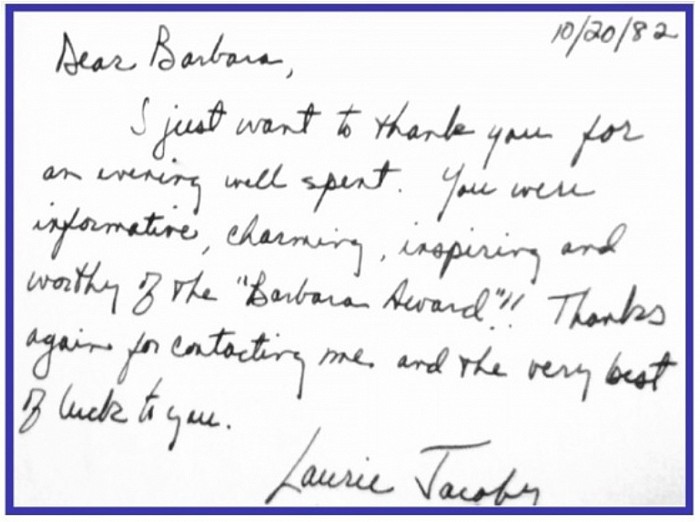 10/20/82
Dear Barbara,
I just want to thank you for
an evening well spent. You were
informative, charming, inspiring and
worthy of the "Barbara Award"!! Thanks
again for contacting me and the very best
of luck to you.
Laurie Jacoby